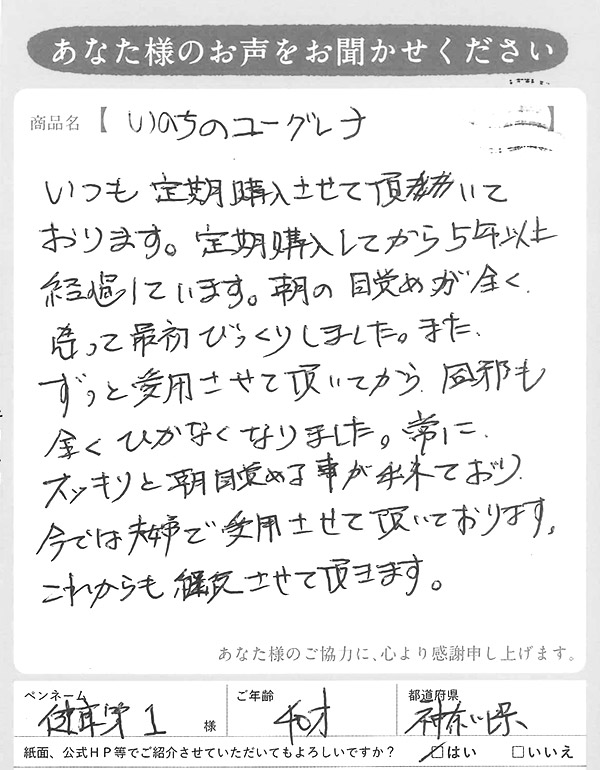 あなた様のお声をお聞かせください
商品名【 いのちのユーグレナ 】
いつも定期購入させて頂いて
おります。定期購入してから5年以上
経過しています。朝の目覚めが全く、
違って最初びっくりしました。また、
ずっと愛用させて頂いてから、風邪も
全くひかなくなりました。常に、
スッキリと朝目覚める事が出来ており、
今では夫婦で愛用させて頂いております。
これからも継続させて頂きます。
あなた様のご協力に、心より感謝申し上げます。
ペンネーム 健康第1 様 ご年齢 都道府県 神奈川県
紙面、公式HP等でご紹介させていただいてもよろしいですか? ☑はい □いいえ